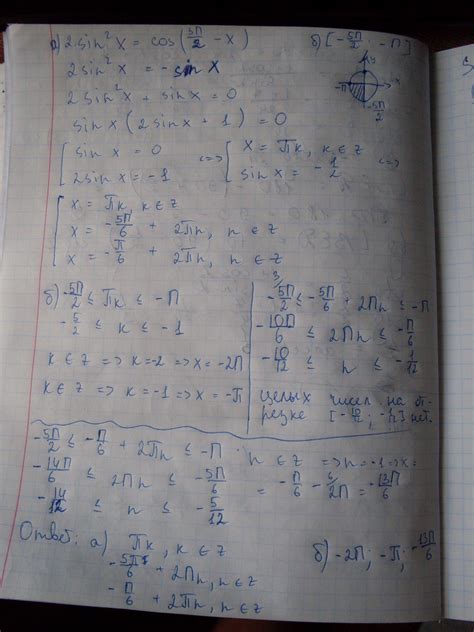 а) 2sin²x = cos(5π/2 - x)
б) [-5π/2; -π]
2sin²x = -sin x
2sin²x + sin x = 0
sin x (2sin x + 1) = 0
y
x
-π
-5π/2
[ sin x = 0 <=> [ x = πk, k ∈ z <=>
2sin x = -1 sin x = -1/2
[ x = πk, k ∈ z
x = -5π/6 + 2πn, n ∈ z
x = -π/6 + 2πn, n ∈ z
б) -5π/2 ≤ πk ≤ -π
-5/2 ≤ k ≤ -1
k ∈ z => k = -2 => x = -2π
k ∈ z => k = -1 => x = -π
-5π/2 ≤ -5π/6 + 2πn ≤ -π
-10π/6 ≤ 2πn ≤ -π/6
-10/12 ≤ n ≤ -1/12
целых чисел на от
резке [-10/12; -1/12] нет.
-5π/2 ≤ -π/6 + 2πn ≤ -π
-14π/6 ≤ 2πn ≤ -5π/6
-14/12 ≤ n ≤ -5/12
n ∈ z => n = -1 => x =
= -π/6 - 2π = -13π/6
Ответ: а) πk, k ∈ z
-5π/6 + 2πn, n ∈ z
-π/6 + 2πn, n ∈ z
б) -2π; -π; -13π/6